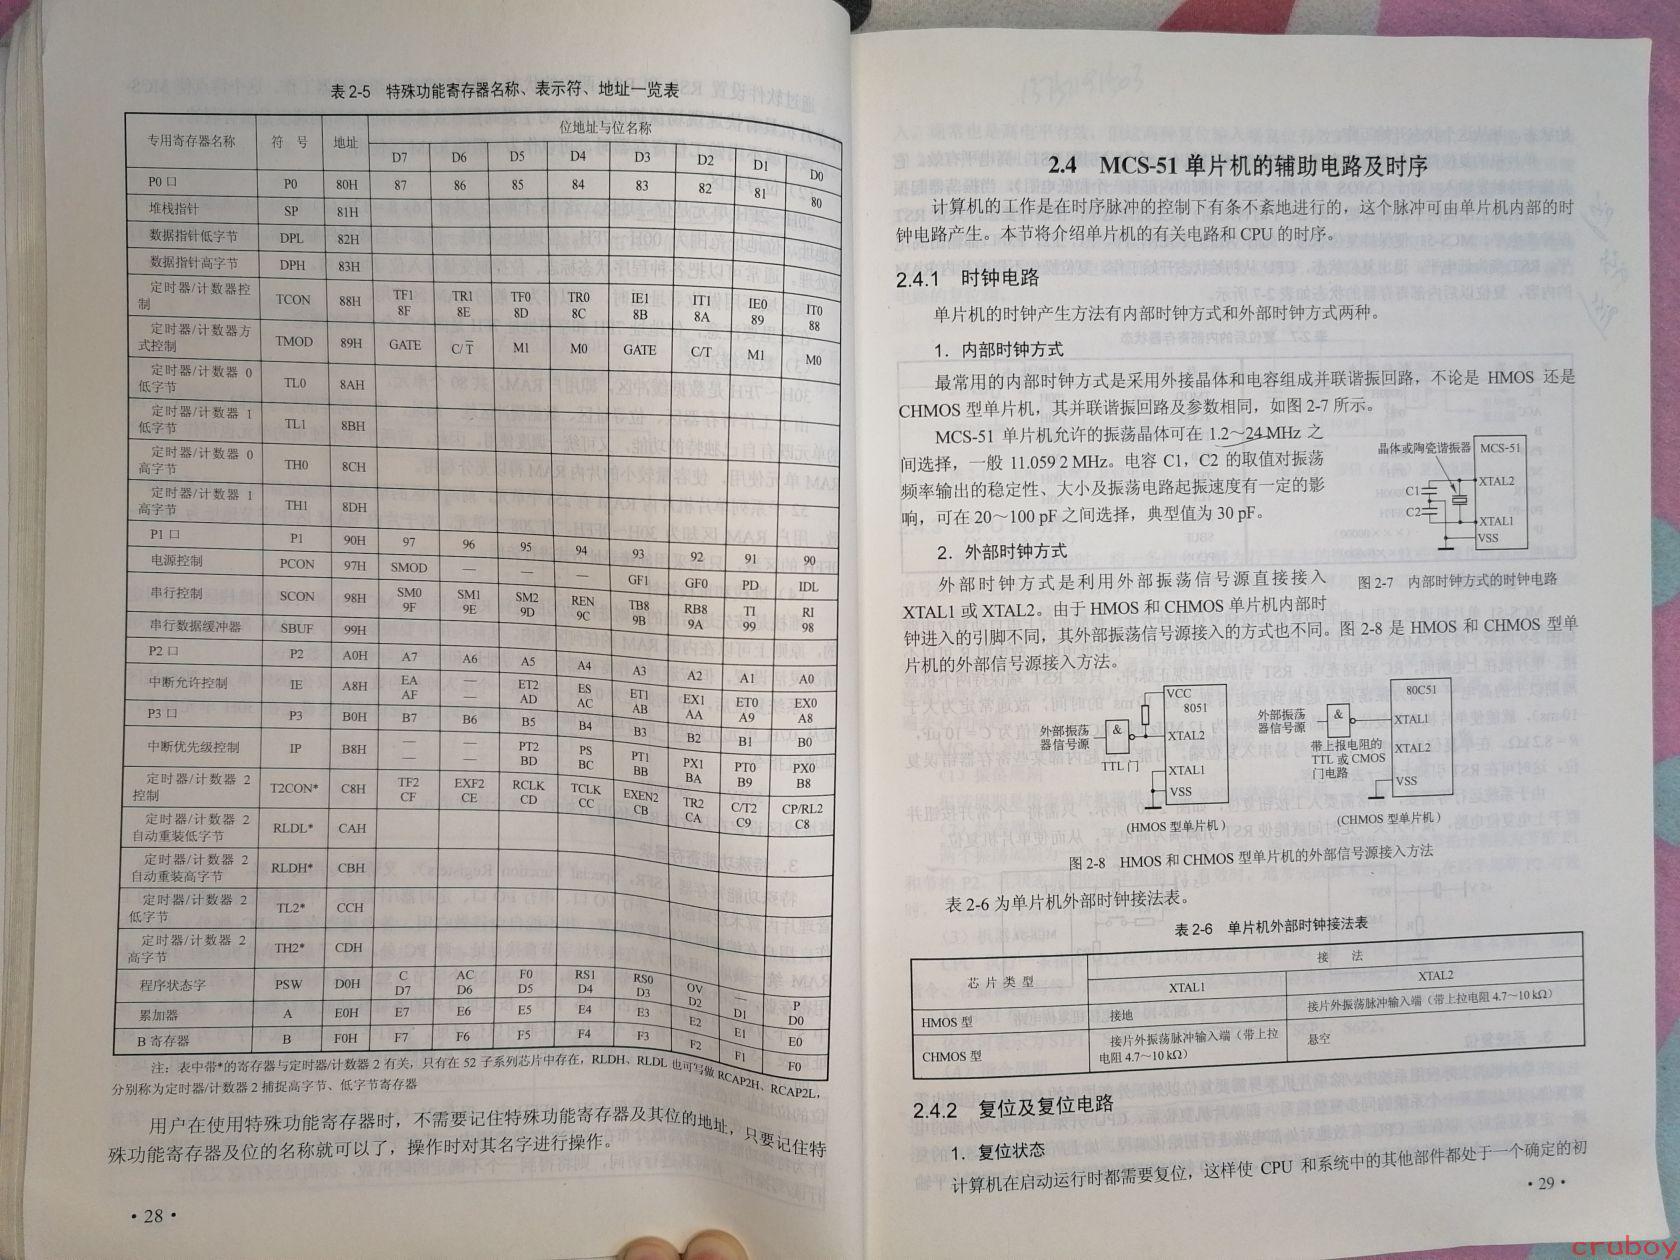 表 2-5 特殊功能寄存器名称、表示符、地址一览表
专用寄存器名称 符 号 地址 位地址与位名称
D7 D6 D5 D4 D3 D2 D1 D0
P0 口 P0 80H 87 86 85 84 83 82 81 80
堆栈指针 SP 81H
数据指针低字节 DPL 82H
数据指针高字节 DPH 83H
定时器/计数器控
制 TCON 88H TF1 TR1 TF0 TR0 IE1 IT1 IE0 IT0
8F 8E 8D 8C 8B 8A 89 88
定时器/计数器方
式控制 TMOD 89H GATE C/T̅ M1 M0 GATE C/T M1 M0
定时器/计数器 0
低字节 TL0 8AH
定时器/计数器 1
低字节 TL1 8BH
定时器/计数器 0
高字节 TH0 8CH
定时器/计数器 1
高字节 TH1 8DH
P1 口 P1 90H 97 96 95 94 93 92 91 90
电源控制 PCON 97H SMOD — — — GF1 GF0 PD IDL
串行控制 SCON 98H SM0 SM1 SM2 REN TB8 RB8 TI RI
9F 9E 9D 9C 9B 9A 99 98
串行数据缓冲器 SBUF 99H
P2 口 P2 A0H A7 A6 A5 A4 A3 A2 A1 A0
中断允许控制 IE A8H EA — ET2 ES ET1 EX1 ET0 EX0
AF — AD AC AB AA A9 A8
P3 口 P3 B0H B7 B6 B5 B4 B3 B2 B1 B0
中断优先级控制 IP B8H — — PT2 PS PT1 PX1 PT0 PX0
— — BD BC BB BA B9 B8
定时器/计数器 2
控制 T2CON* C8H TF2 EXF2 RCLK TCLK EXEN2 TR2 C/T2 CP/RL2
CF CE CD CC CB CA C9 C8
定时器/计数器 2
自动重装低字节 RLDL* CAH
定时器/计数器 2
自动重装高字节 RLDH* CBH
定时器/计数器 2
低字节 TL2* CCH
定时器/计数器 2
高字节 TH2* CDH
程序状态字 PSW D0H C AC F0 RS1 RS0 OV — P
D7 D6 D5 D4 D3 D2 D1 D0
累加器 A E0H E7 E6 E5 E4 E3 E2 E1 E0
B 寄存器 B F0H F7 F6 F5 F4 F3 F2 F1 F0
注：表中带*的寄存器与定时器/计数器 2 有关，只有在 52 子系列芯片中存在，RLDH、RLDL 也可写做 RCAP2H、RCAP2L，
分别称为定时器/计数器 2 捕捉高字节、低字节寄存器
用户在使用特殊功能寄存器时，不需要记住特殊功能寄存器及其位的地址，只要记住特
殊功能寄存器及位的名称就可以了，操作时对其名字进行操作。
· 28 ·
2.4 MCS-51 单片机的辅助电路及时序
计算机的工作是在时序脉冲的控制下有条不紊地进行的，这个脉冲可由单片机内部的时
钟电路产生。本节将介绍单片机的有关电路和 CPU 的时序。
2.4.1 时钟电路
单片机的时钟产生方法有内部时钟方式和外部时钟方式两种。
1．内部时钟方式
最常用的内部时钟方式是采用外接晶体和电容组成并联谐振回路，不论是 HMOS 还是
CHMOS 型单片机，其并联谐振回路及参数相同，如图 2-7 所示。
MCS-51 单片机允许的振荡晶体可在 1.2～24 MHz 之
间选择，一般 11.059 2 MHz。电容 C1，C2 的取值对振荡
频率输出的稳定性、大小及振荡电路起振速度有一定的影
响，可在 20～100 pF 之间选择，典型值为 30 pF。
晶体或陶瓷谐振器 MCS-51
XTAL2
C1
C2
XTAL1
VSS
图 2-7 内部时钟方式的时钟电路
2．外部时钟方式
外部时钟方式是利用外部振荡信号源直接接入
XTAL1 或 XTAL2。由于 HMOS 和 CHMOS 单片机内部时
钟进入的引脚不同，其外部振荡信号源接入的方式也不同。图 2-8 是 HMOS 和 CHMOS 型单
片机的外部信号源接入方法。
VCC
8051
外部振荡
器信号源
&
XTAL2
TTL 门
XTAL1
VSS
(HMOS 型单片机)
80C51
外部振荡
器信号源
&
XTAL1
带上报电阻的
TTL 或 CMOS
门电路
XTAL2
VSS
(CHMOS 型单片机)
图 2-8 HMOS 和 CHMOS 型单片机的外部信号源接入方法
表 2-6 为单片机外部时钟接法表。
表 2-6 单片机外部时钟接法表
芯 片 类 型 接 法
XTAL1 XTAL2
HMOS 型 接地 接片外振荡脉冲输入端（带上拉电阻 4.7～10 kΩ）
CHMOS 型 接片外振荡脉冲输入端（带上拉
电阻 4.7～10 kΩ） 悬空
2.4.2 复位及复位电路
1．复位状态
计算机在启动运行时都需要复位，这样使 CPU 和系统中的其他部件都处于一个确定的初
· 29 ·
cruboy